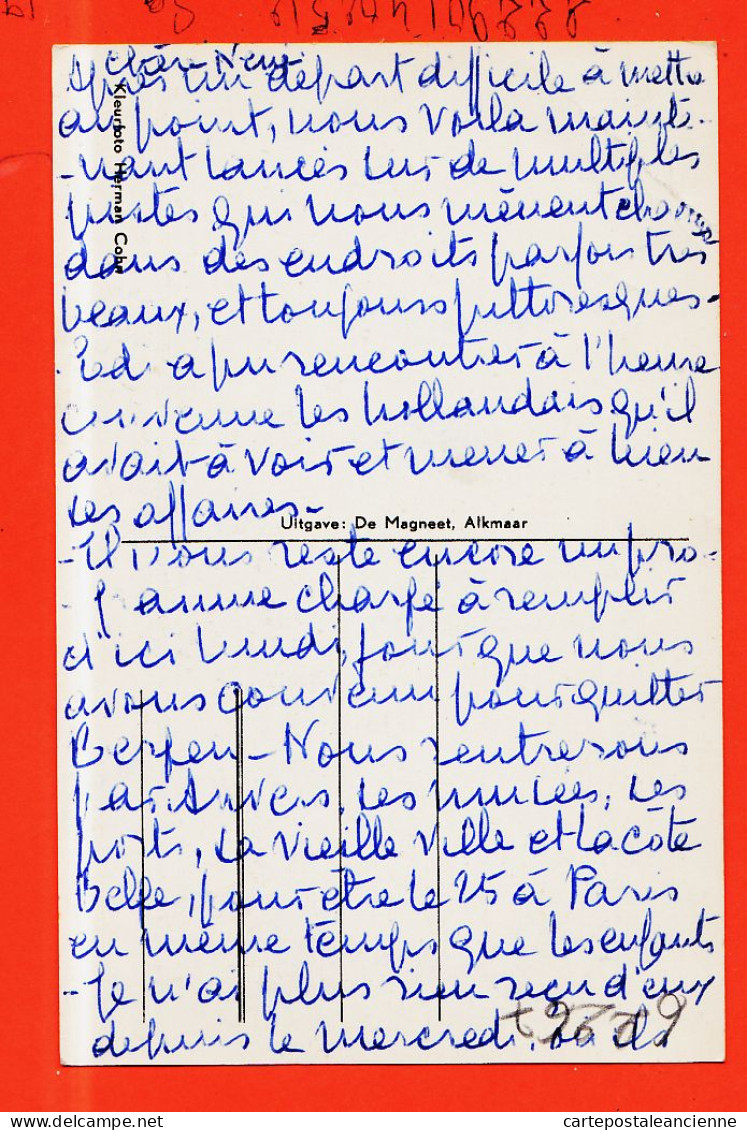 Chère Neni
Après un départ difficile à mettre
au point, nous voilà mainte-
-nant lancés sur de multiples
pistes qui nous mènent chaque
dans des endroits parfois très
beaux, et toujours pittoresques -
Ed. a pu rencontrer à l'heure
convenue les hollandais qu'il
avait à voir et mener à bien
ses affaires -
Uitgave: De Magneet, Alkmaar
- Il nous reste encore un pro-
- gramme chargé à remplir
d'ici lundi, jour que nous
avons convenu pour quitter
Bergen - Nous rentrerons
par Anvers, ses musées, ses
ports, sa vieille ville et la côte
Belge, pour être le 25 à Paris
en même temps que les enfants
- Je n'ai plus rien reçu d'eux
depuis le mercredi, où ils
Kleurfoto Herman Cohn
cartepostaleancienne